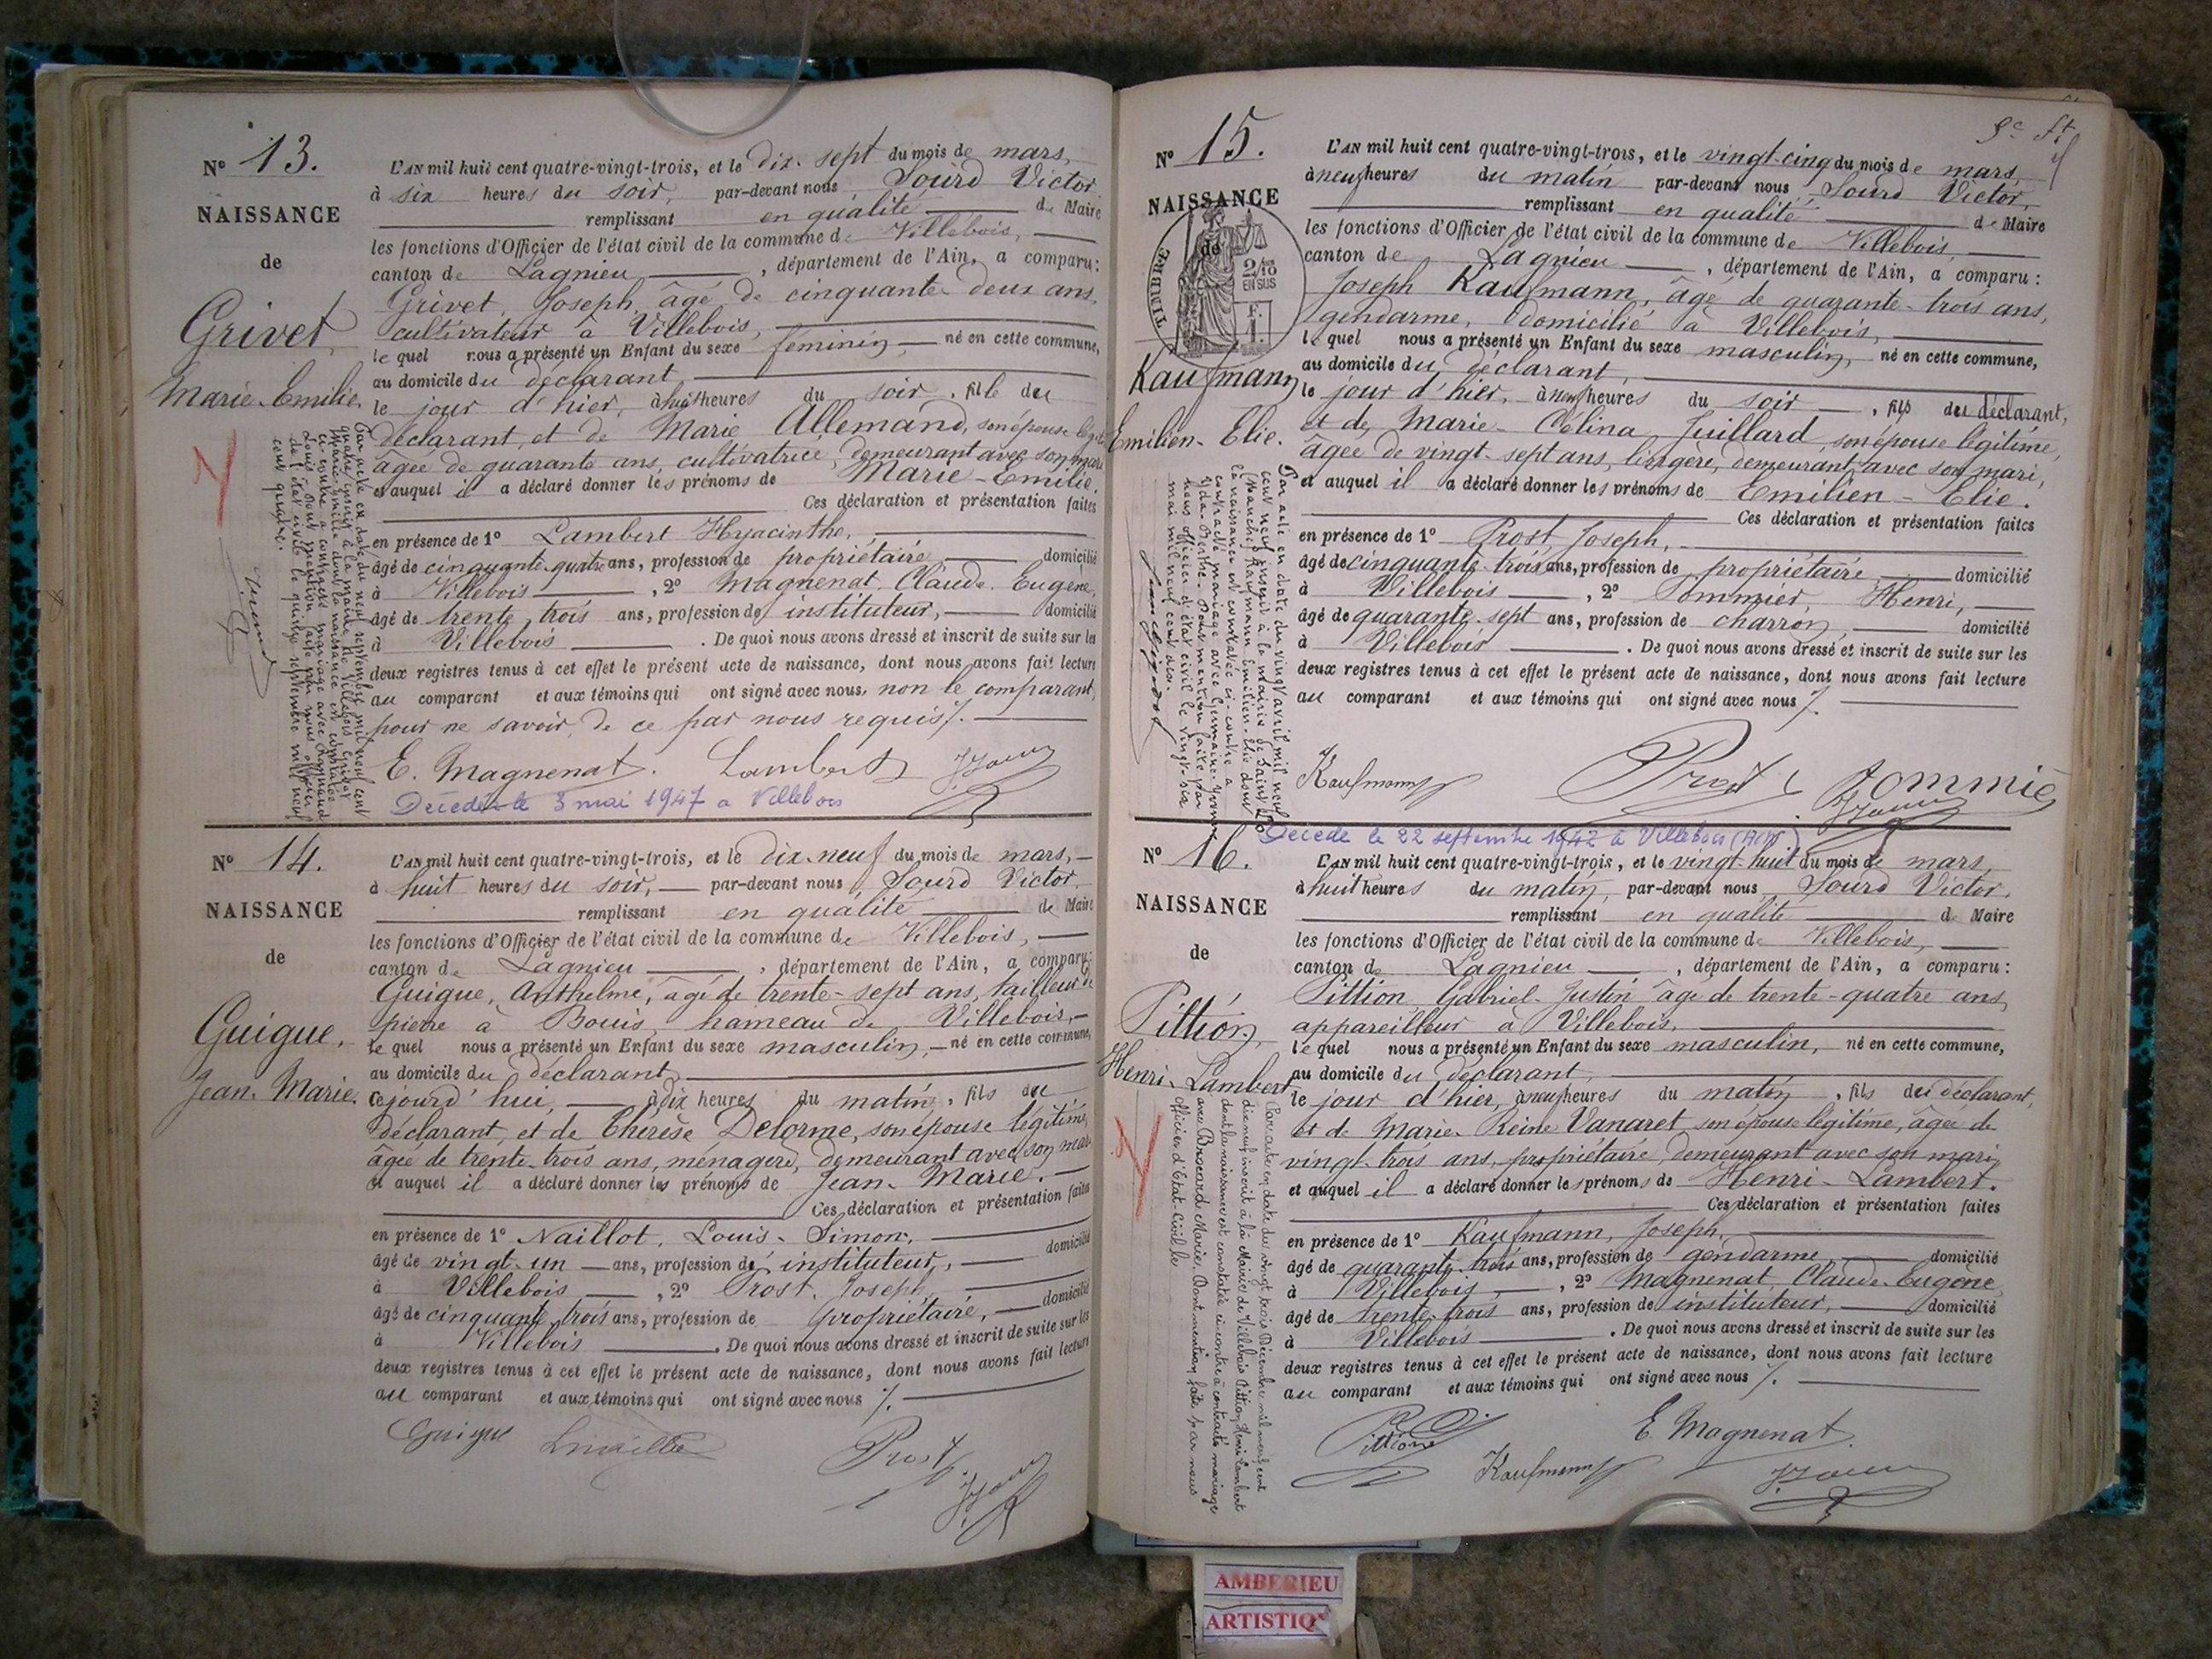 N° 13.
NAISSANCE
de
Grivet,
Marie-Emilie.
L'AN mil huit cent quatre-vingt-trois, et le dix-sept du mois de mars,
à six heures du soir, par-devant nous, Sourd Victor
remplissant en qualité de Maire
les fonctions d'Officier de l'état civil de la commune de Villebois,
canton de Lagnieu, département de l'Ain, a comparu:
Grivet, Joseph, âgé de cinquante-deux ans,
cultivateur à Villebois,
lequel nous a présenté un Enfant du sexe féminin, né en cette commune,
au domicile du déclarant
le jour d'hier, à huit heures du soir, fille du
déclarant, et de Marie Allemand, son épouse
âgée de quarante ans, cultivatrice, demeurant avec son mari
et auquel il a déclaré donner les prénoms de Marie-Emilie.
Ces déclaration et présentation faites
en présence de 1° Lambert Hyacinthe,
âgé de cinquante-quatre ans, profession de propriétaire domicilié
à Villebois, 2° Magnenat, Claude-Eugène,
âgé de trente-trois ans, profession de instituteur, domicilié
à Villebois. De quoi nous avons dressé et inscrit de suite sur les
deux registres tenus à cet effet le présent acte de naissance, dont nous avons fait lecture
au comparant et aux témoins qui ont signé avec nous, non le comparant,
pour ne savoir, de ce par nous requis ⁒.
E. Magnenat. Lambert
Décédée le 3 mai 1947 a Villebois
Par acte en date du neuf septembre mil neuf cent
quatre, inscrit à la mairie de Villebois, Grivet
Marie-Emilie dont la naissance est constatée
ci-contre a contracté mariage avec
Louis. Dont mention faite par nous officier
de l'état civil le quinze septembre mil neuf
cent quatre.
N° 14.
NAISSANCE
de
Guigue,
Jean-Marie.
L'AN mil huit cent quatre-vingt-trois, et le dix-neuf du mois de mars,
à huit heures du soir, par-devant nous, Sourd Victor,
remplissant en qualité de Maire
les fonctions d'Officier de l'état civil de la commune de Villebois,
canton de Lagnieu, département de l'Ain, a comparu:
Guigue, Anthelme, âgé de trente-sept ans, tailleur de
pierre à Bouis, hameau de Villebois,
lequel nous a présenté un Enfant du sexe masculin, né en cette commune,
au domicile du déclarant
cejourd'hui, à dix heures du matin, fils du
déclarant, et de Thérèse Delorme, son épouse légitime,
âgée de trente-trois ans, ménagère, demeurant avec son mari
et auquel il a déclaré donner les prénoms de Jean-Marie.
Ces déclaration et présentation faites
en présence de 1° Naillot, Louis-Simon,
âgé de vingt-un ans, profession de instituteur, domicilié
à Villebois, 2° Prost, Joseph,
âgé de cinquante-trois ans, profession de propriétaire, domicilié
à Villebois. De quoi nous avons dressé et inscrit de suite sur les
deux registres tenus à cet effet le présent acte de naissance, dont nous avons fait lecture
au comparant et aux témoins qui ont signé avec nous ⁒.
Guigue Prost
N° 15.
NAISSANCE
de
TIMBRE
2/10 EN SUS
F. 1.
Kaufmann
Emilien-Elie.
L'AN mil huit cent quatre-vingt-trois, et le vingt-cinq du mois de mars,
à neuf heures du matin par-devant nous, Sourd Victor,
remplissant en qualité de Maire
les fonctions d'Officier de l'état civil de la commune de Villebois,
canton de Lagnieu, département de l'Ain, a comparu:
Joseph Kaufmann, âgé de quarante-trois ans,
gendarme, domicilié à Villebois,
lequel nous a présenté un Enfant du sexe masculin, né en cette commune,
au domicile du déclarant,
le jour d'hier, à neuf heures du soir, fils du déclarant,
et de Marie-Célina Juillard, son épouse légitime,
âgée de vingt-sept ans, lingère, demeurant avec son mari,
et auquel il a déclaré donner les prénoms de Emilien-Elie.
Ces déclaration et présentation faites
en présence de 1° Prost, Joseph,
âgé de cinquante-trois ans, profession de propriétaire, domicilié
à Villebois, 2° Pommier, Henri,
âgé de quarante-sept ans, profession de charron, domicilié
à Villebois. De quoi nous avons dressé et inscrit de suite sur les
deux registres tenus à cet effet le présent acte de naissance, dont nous avons fait lecture
au comparant et aux témoins qui ont signé avec nous ⁒.
Kaufmann Prost Pommié
Décédé le 22 septembre 1942 à Villebois (Ain)
Par acte en date du vingt avril mil neuf
cent neuf inscrit à la mairie de Saint-Lô
(Manche) Kaufmann Emilien-Elie dont
la naissance est constatée ci-contre a
contracté mariage avec Germaine-Yvonne
Berthe. Dont mention faite par
nous officier d'état civil le vingt-six
mai mil neuf cent
N° 16.
NAISSANCE
de
Pittion,
Henri-Lambert
L'AN mil huit cent quatre-vingt-trois, et le vingt-huit du mois de mars,
à huit heures du matin, par-devant nous, Sourd Victor,
remplissant en qualité de Maire
les fonctions d'Officier de l'état civil de la commune de Villebois,
canton de Lagnieu, département de l'Ain, a comparu:
Pittion, Gabriel-Justin âgé de trente-quatre ans,
appareilleur à Villebois,
lequel nous a présenté un Enfant du sexe masculin, né en cette commune,
au domicile du déclarant,
le jour d'hier, à neuf heures du matin, fils du déclarant,
et de Marie-Reine Vanaret, son épouse légitime, âgée de
vingt-trois ans, propriétaire, demeurant avec son mari
et auquel il a déclaré donner les prénoms de Henri-Lambert.
Ces déclaration et présentation faites
en présence de 1° Kaufmann, Joseph,
âgé de quarante-trois ans, profession de gendarme, domicilié
à Villebois, 2° Magnenat, Claude-Eugène,
âgé de trente-trois ans, profession de instituteur, domicilié
à Villebois. De quoi nous avons dressé et inscrit de suite sur les
deux registres tenus à cet effet le présent acte de naissance, dont nous avons fait lecture
au comparant et aux témoins qui ont signé avec nous ⁒.
Pittion E. Magnenat.
Kaufmann
Par acte en date du vingt trois Décembre mil neuf cent
dix neuf inscrit à la Mairie de Villebois Pittion Henri-Lambert
dont la naissance est constatée ci-contre a contracté mariage
avec Brocard Marie. Dont mention faite par nous
officier d'Etat-civil le
AMBERIEU
ARTISTIQ